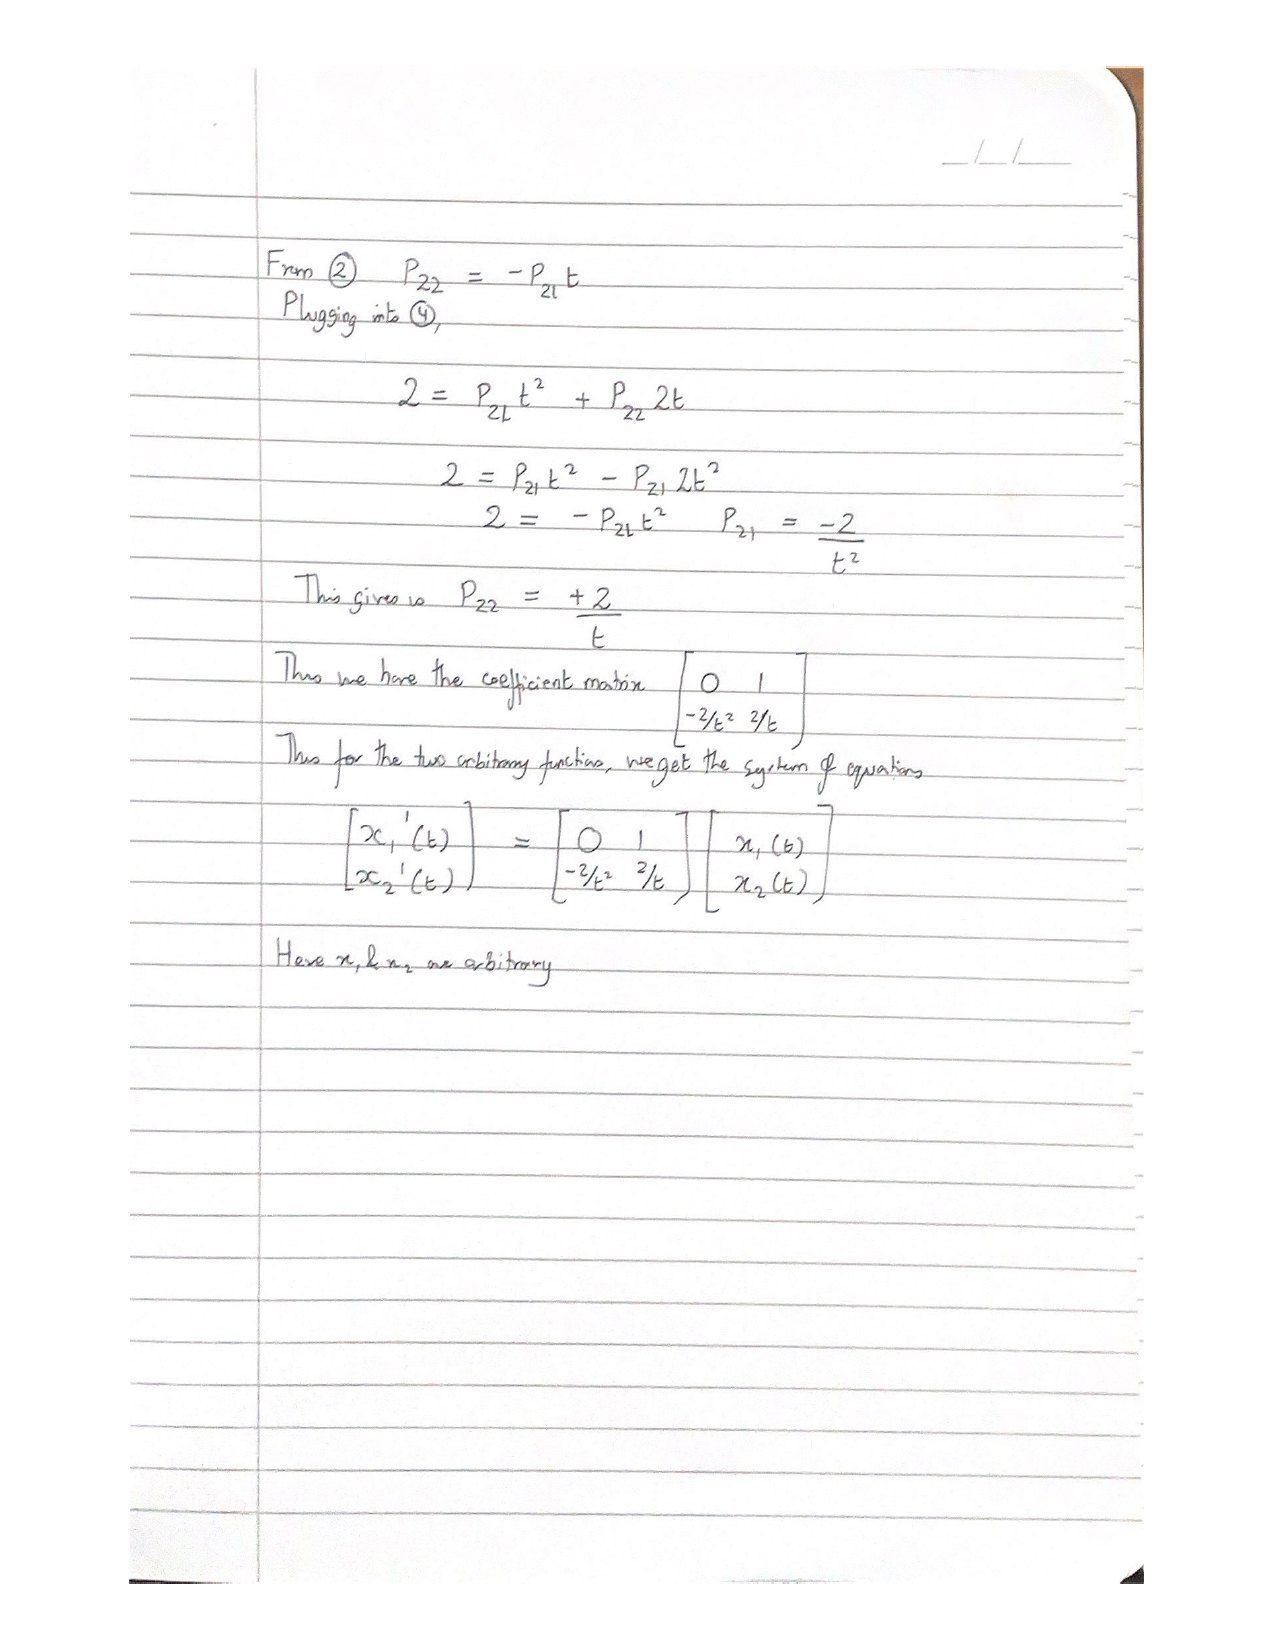 From ② P₂₂ = -P₂₁t
Plugging into ④,
2 = P₂₁t² + P₂₂ 2t
2 = P₂₁t² - P₂₁ 2t²
2 = -P₂₁t² P₂₁ = -2/t²
This gives us P₂₂ = +2/t
Thus we have the coefficient matrix [0 1
-2/t² 2/t]
Thus for the two arbitrary functions, we get the system of equations
[x₁'(t) = [0 1 [x₁(t)
x₂'(t)] -2/t² 2/t] x₂(t)]
Here x₁ & x₂ are arbitrary